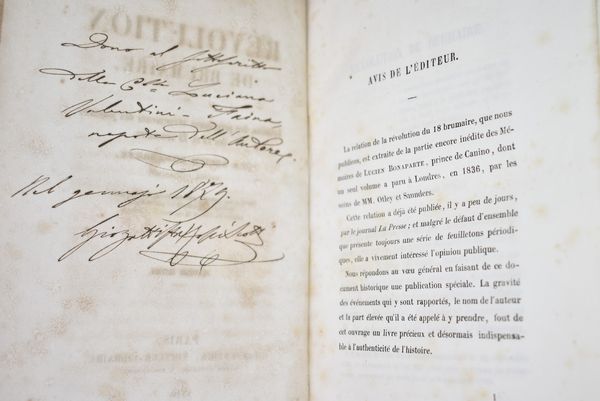 Dono al sottoscritto
della Ctssa Luciana
Valentini-Faina,
nepote dell'Autore.
Nel gennajo 1879.
AVIS DE L'ÉDITEUR.
La relation de la révolution du 18 brumaire, que nous
publions, est extraite de la partie encore inédite des Mé-
moires de LUCIEN BONAPARTE, prince de Canino, dont
un seul volume a paru à Londres, en 1836, par les
soins de MM. Otley et Saunders.
Cette relation a déjà été publiée, il y a peu de jours,
par le journal La Presse; et malgré le défaut d'ensemble
que présente toujours une série de feuilletons périodi-
ques, elle a vivement intéressé l'opinion publique.
Nous répondons au vœu général en faisant de ce do-
cument historique une publication spéciale. La gravité
des événements qui y sont rapportés, le nom de l'auteur
et la part élevée qu'il a été appelé à y prendre, font de
cet ouvrage un livre précieux et désormais indispensa-
ble à l'authenticité de l'histoire.
1